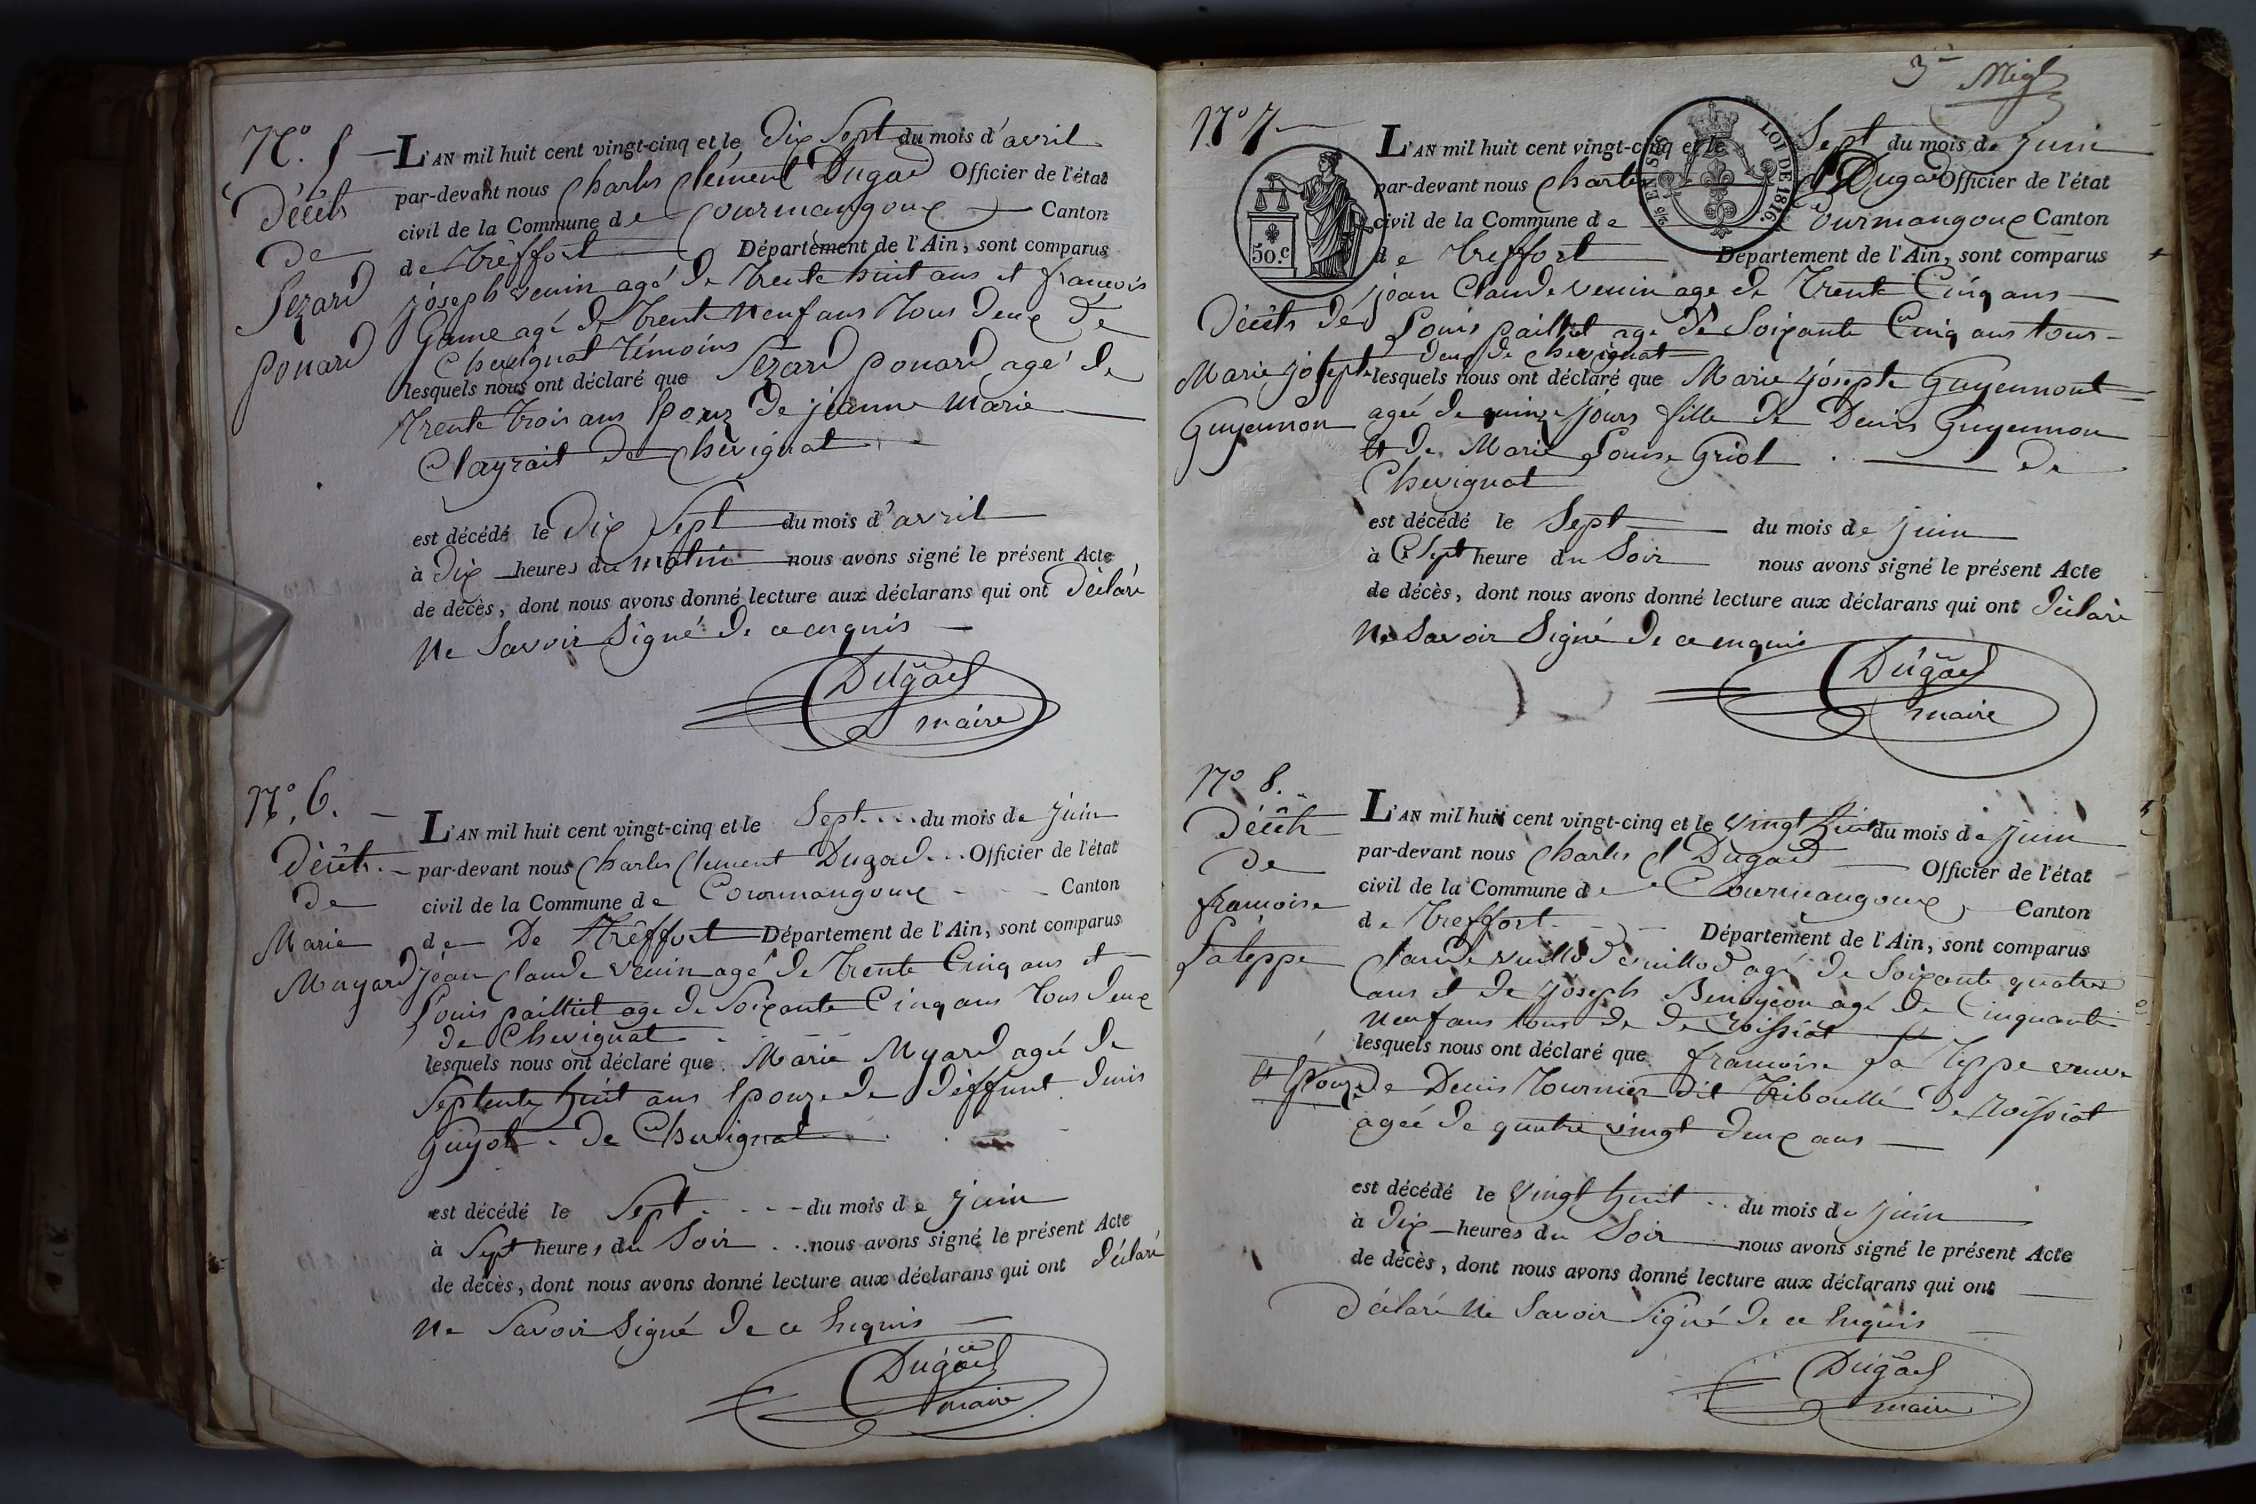 N.º 5
Décèt
de
Sezard
ponard
L'AN mil huit cent vingt-cinq et le dix Sept du mois d'avril
par-devant nous Charles Clément Dugad Officier de l'état
civil de la Commune de Courmangoux Canton
de Trêffort Département de l'Ain, sont comparus
joseph venin agé de trente huit ans et francois
Game agé de trente neuf ans tous deux de
Chevignat témoins
lesquels nous ont déclaré que Sezard ponard agé de
trente trois ans Epouz de jeanne Marie
Clayrait de Chevignat
est décédé le dix Sept du mois d'avril
à dix heures du matin nous avons signé le présent Acte
de décès, dont nous avons donné lecture aux déclarans qui ont déclaré
Ne Savoir Signé de ce enquis
Dugad
maire
Nº. 6.
Décèt
de
Marie
Muyard
L'AN mil huit cent vingt-cinq et le Sept du mois de juin
par-devant nous Charles Clement Dugad Officier de l'état
civil de la Commune de Courmangoux Canton
de De Trêffort Département de l'Ain, sont comparus
jean Claude venin agé de trente Cinq ans et
Louis paillet age de Soixante Cinq ans tous deux
de Chevignat
lesquels nous ont déclaré que Marie Myard agé de
Septente huit ans Epouze de déffunt denis
Guyot de Chevignat
est décédé le Sept du mois de juin
à Sept heures du Soir nous avons signé le présent Acte
de décès, dont nous avons donné lecture aux déclarans qui ont déclaré
Ne Savoir Signé de ce Enquis
Dugad
maire
3
Nº 7
50.c
LOI DE 1816.
Décèt de
Marie josepte
Guyennon
L'AN mil huit cent vingt-cinq et le Sept du mois de juin
par-devant nous Charles Cl Dugad Officier de l'état
civil de la Commune de Courmangoux Canton
de Treffort Département de l'Ain, sont comparus
jean Claude venin age de trente Cinq ans
Louis paillet age de Soixante Cinq ans tous
deux de Chevignat
lesquels nous ont déclaré que Marie josepte Guyennont
ageé de quinze jours fille de Denis Guyennon
et de Marie Louise Griot de
Chevignat
est décédé le Sept du mois de juin
à Sept heure du Soir nous avons signé le présent Acte
de décès, dont nous avons donné lecture aux déclarans qui ont déclaré
Ne Savoir Signé de ce enquis
Dugad
maire
Nº 8.
Décèt
de
francoise
Lateppe
L'AN mil huit cent vingt-cinq et le vingt huit du mois de juin
par-devant nous Charles Cl Dugad Officier de l'état
civil de la Commune de Courmangoux Canton
de Treffort Département de l'Ain, sont comparus
Claude vuillod vuillod agé de Soixante quatre
ans et de joseph Benoyeon agé de Cinquante
Neuf ans tous de de Roissiat
lesquels nous ont déclaré que francoise La teppe veuve
et Epouze de Denis Tournier dit Triboullé de Roissiat
ageé de quatre vingt deux ans
est décédé le vingt huit du mois de juin
à dix heures du Soir nous avons signé le présent Acte
de décès, dont nous avons donné lecture aux déclarans qui ont
déclaré Ne Savoir Signé de ce Enquis
Dugad
maire